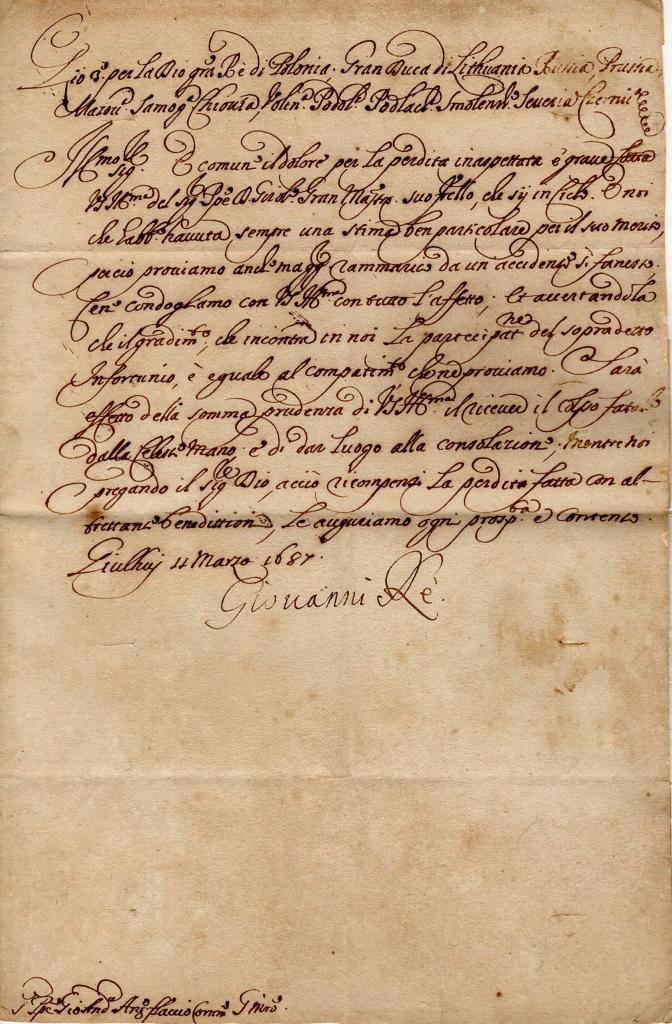 Gio 3º per La Dio grã Rè di Polonia, Gran Duca di Lithuania Russia, Prussia
Mazovª Samogª Chiovia, Volinª Podolª Podlachª Smolensª Severia Czernicª
Illmo Sigle È comune il dolore per La perdita inaspettata e grave fatta
VS Illma del Sigr Ppe D. Girolº Gran Majro suo frllo, che sij in Cielo. E noi
che habbº havuta sempre una stima ben particolare per il suo merito,
perciò proviamo anche magr rammarico da un accidente sì funesto.
Cene condogliamo con VS Illma con tutto L'affetto; Et accertandola
che il gradimto, che incontra in noi La partecipatne del sopradetto
Infortunio, è eguale al compatimto che ne proviamo. Sarà
effetto della somma prudenza di VS Illma il ricever il Colpo fatale
dalla Celeste Mano, e di dar Luogo alla consolazione, mentre noi
pregando il Sigle Dio, acciò ricompensi La perdita fatta con al-
trettante benedittioni, Le auguriamo ogni prosptà e Contento.
11 Marzo 1687.
Giovanni Rè.
Ppe Gio Andª